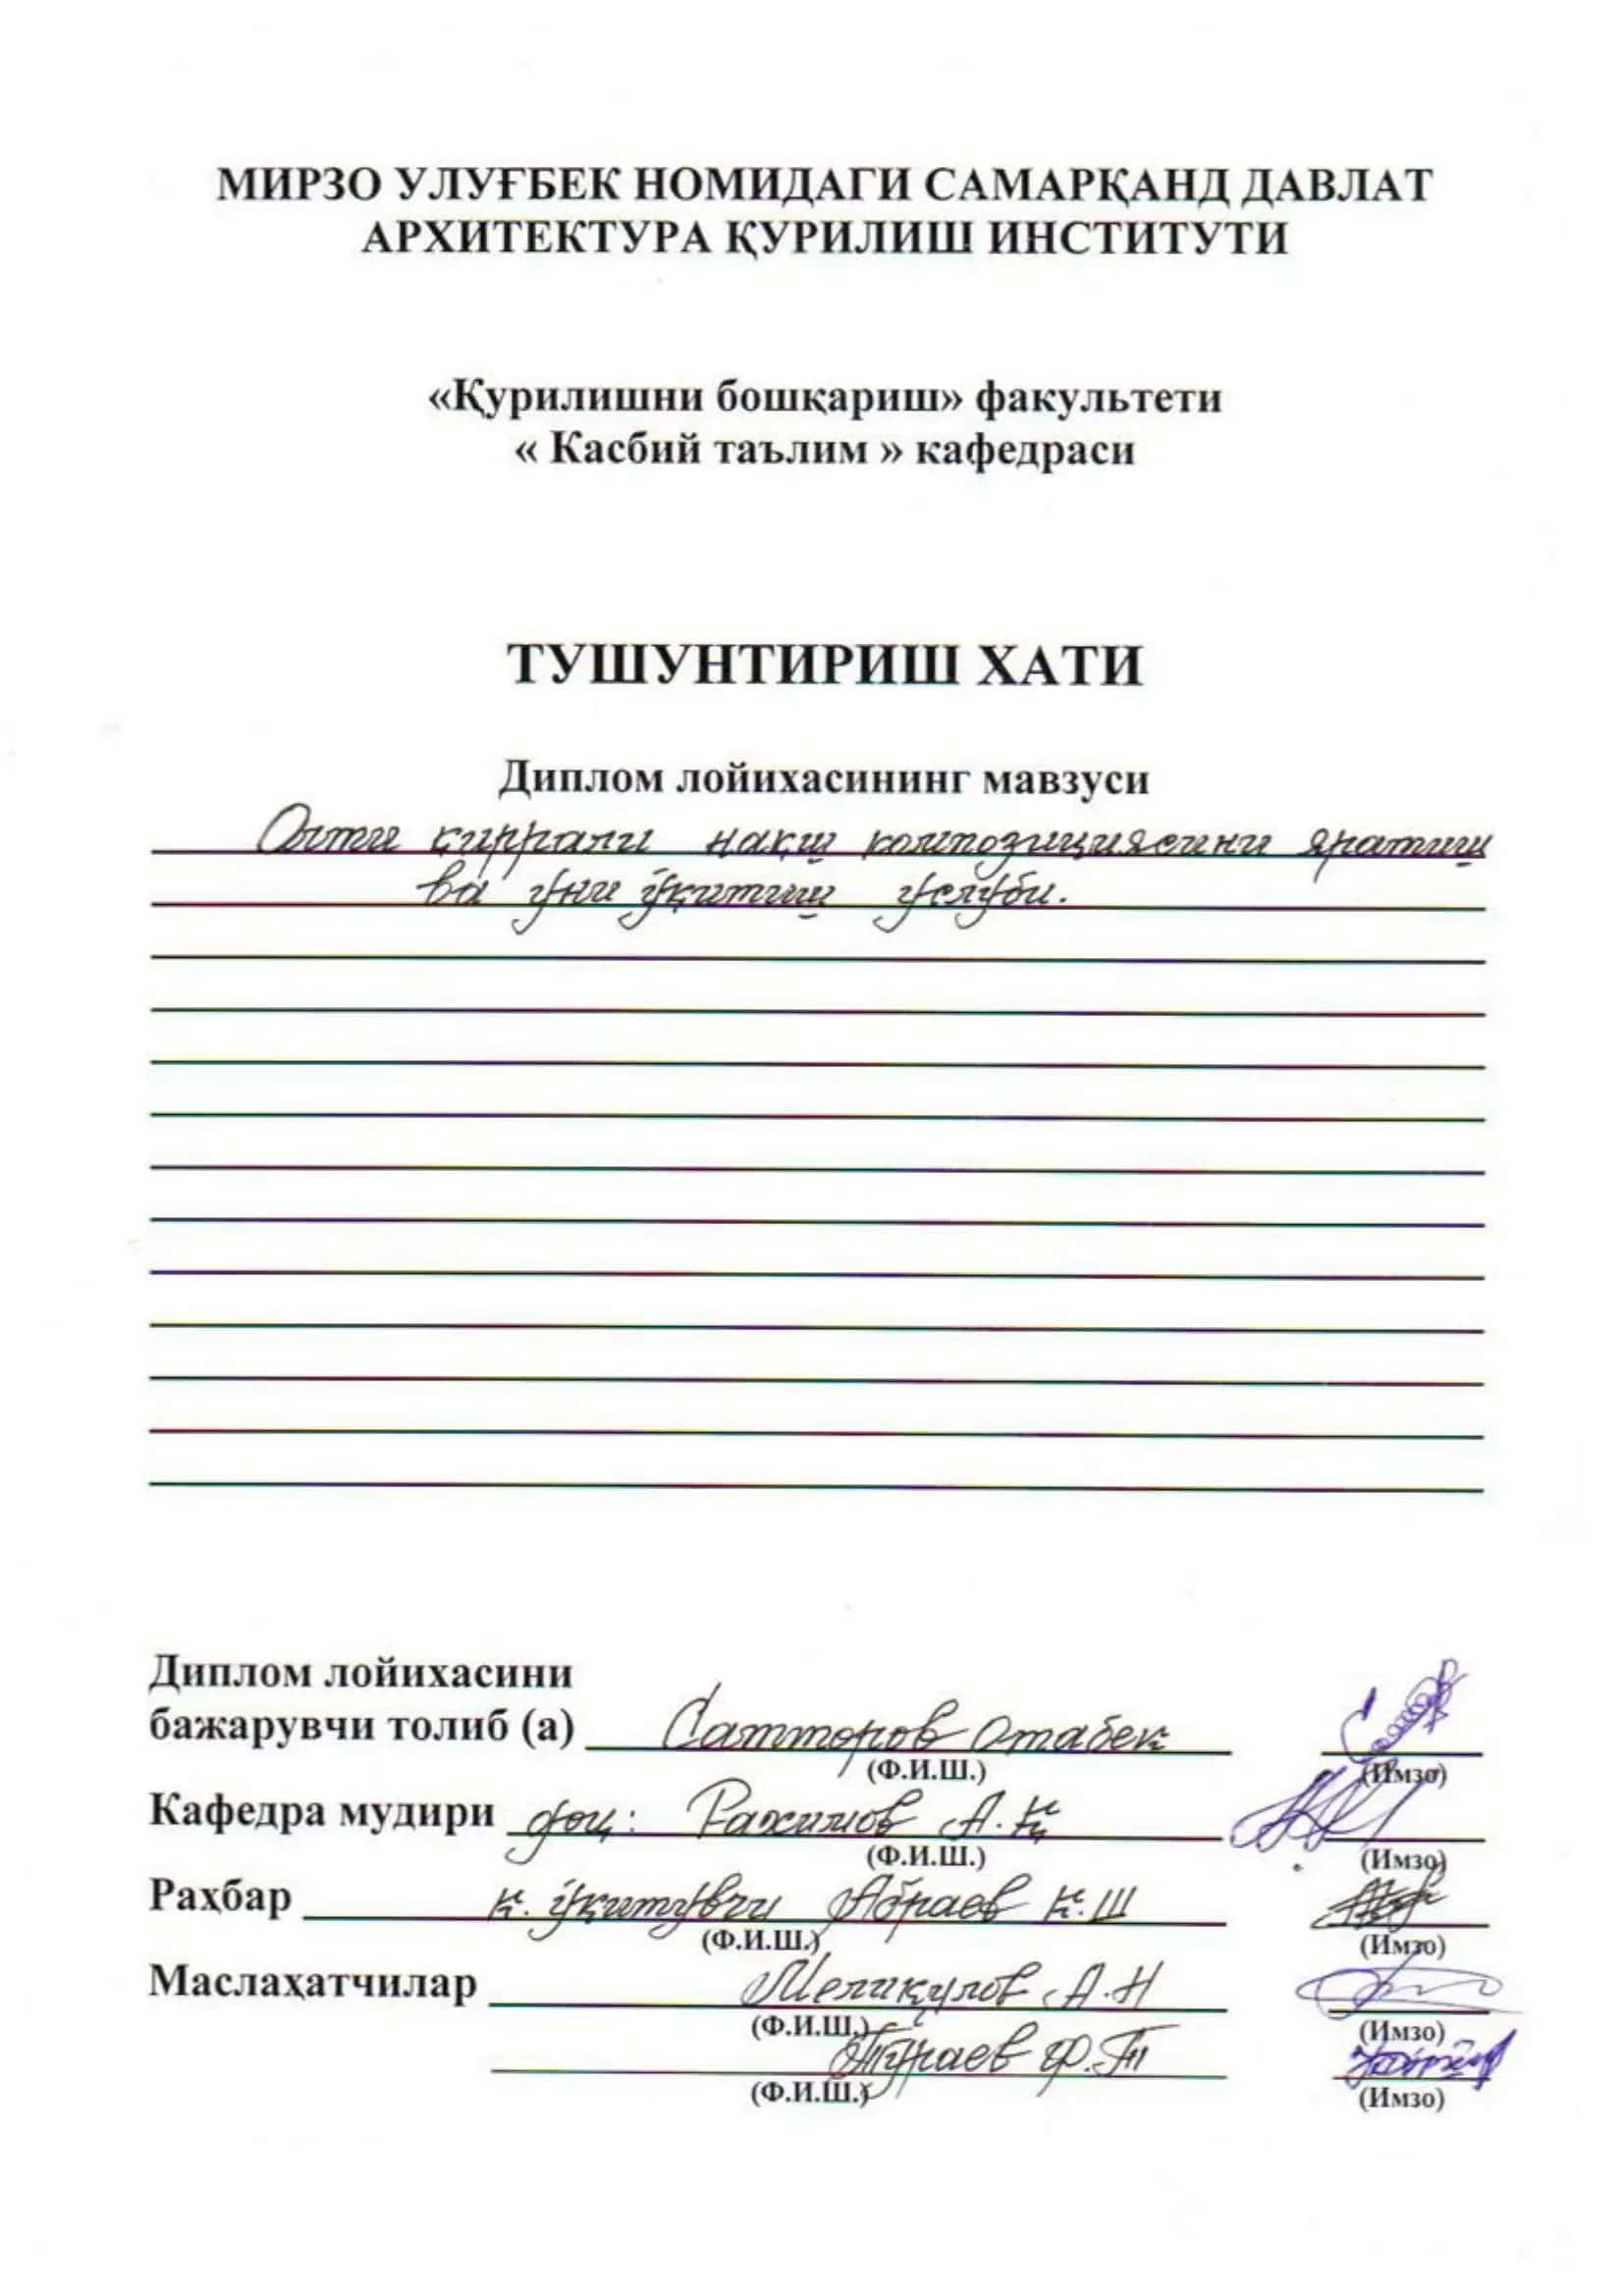 МИРЗО УЛУҒБЕК НОМИДАГИ САМАРҚАНД ДАВЛАТ
АРХИТЕКТУРА ҚУРИЛИШ ИНСТИТУТИ
«Қурилишни бошқариш» факультети
« Касбий таълим » кафедраси
ТУШУНТИРИШ ХАТИ
Диплом лойихасининг мавзуси
Олти қиррали нақш композициясини яратиш
ва уни ўқитиш услуби.
Диплом лойихасини
бажарувчи толиб (а) Сатторов Отабек
(Ф.И.Ш.) (Имзо)
Кафедра мудири доц: Рахимов А.Қ
(Ф.И.Ш.) (Имзо)
Раҳбар к. ўқитувчи Абраев К.Ш
(Ф.И.Ш.) (Имзо)
Маслаҳатчилар Меликулов А.Н
(Ф.И.Ш.) (Имзо)
Тўраев Ф.Т
(Ф.И.Ш.) (Имзо)